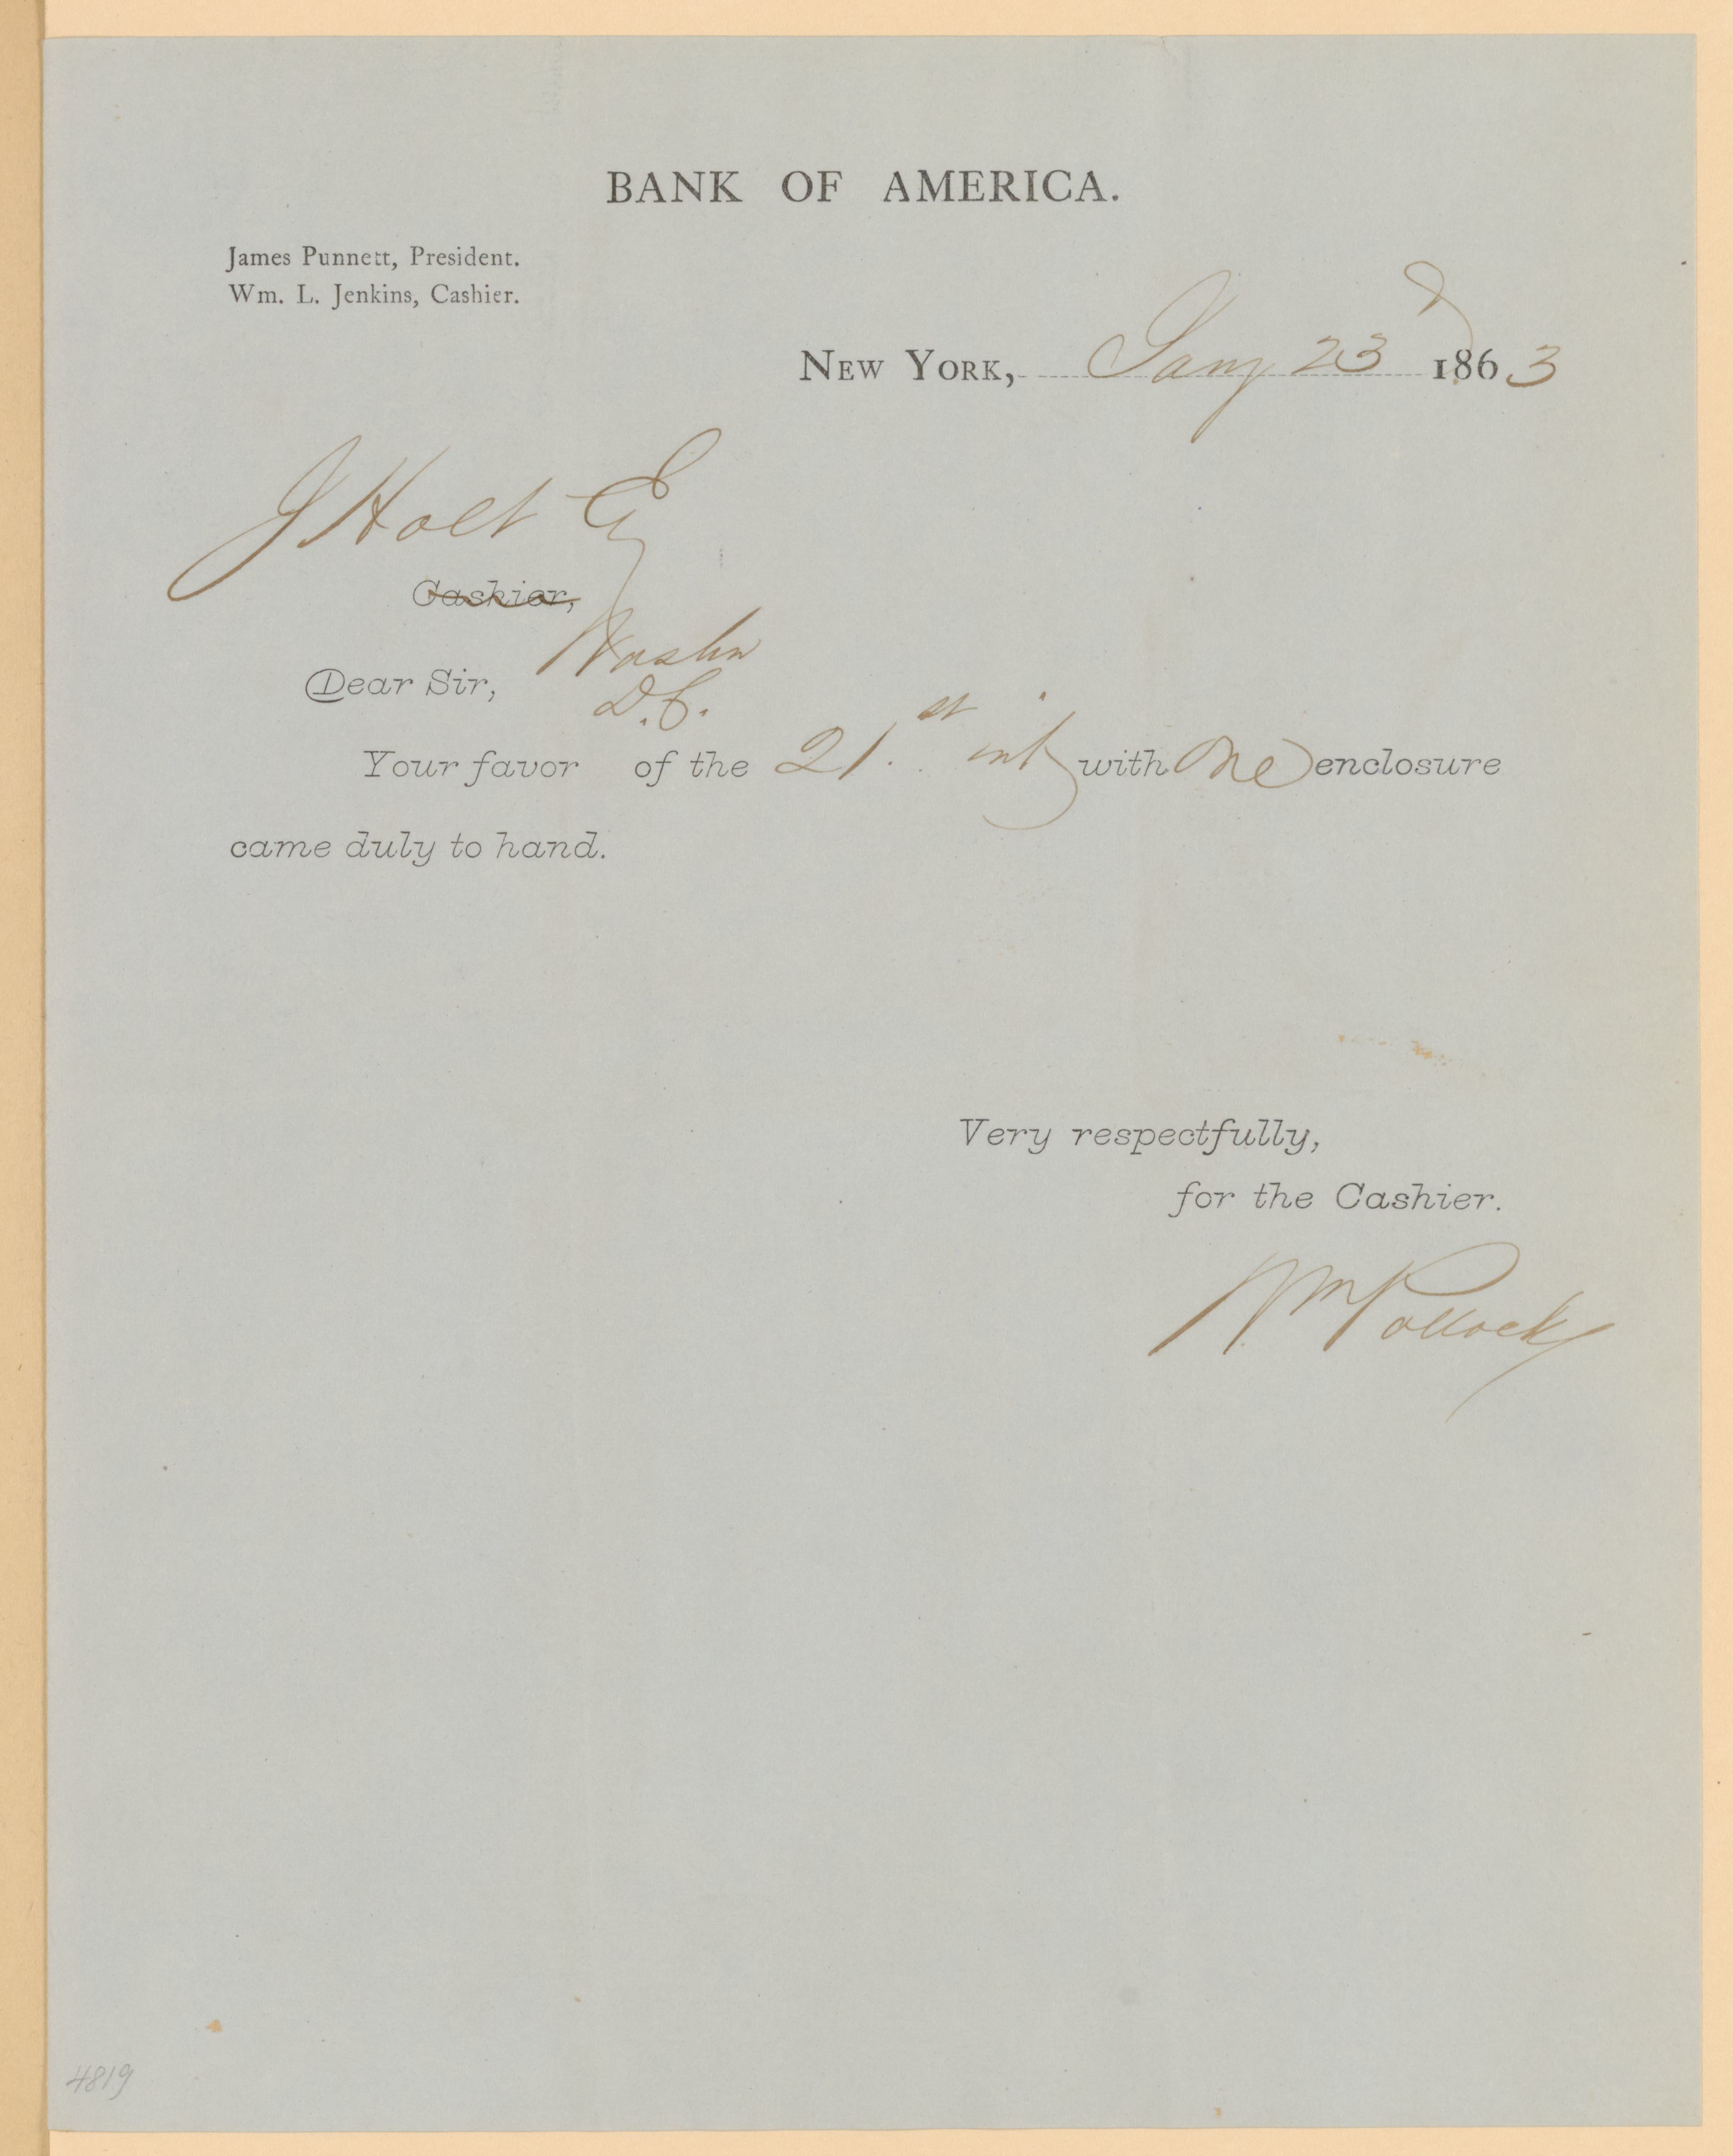 BANK OF AMERICA.
James Punnett, President.
Wm. L. Jenkins, Cashier.
NEW YORK, Jany 23d 1863
J Holt Eq
Cashier,
Washn
Dear Sir,
D.C.
Your favor of the 21.st inst with One enclosure
came duly to hand.
Very respectfully,
for the Cashier.
Wm Pollock
4819